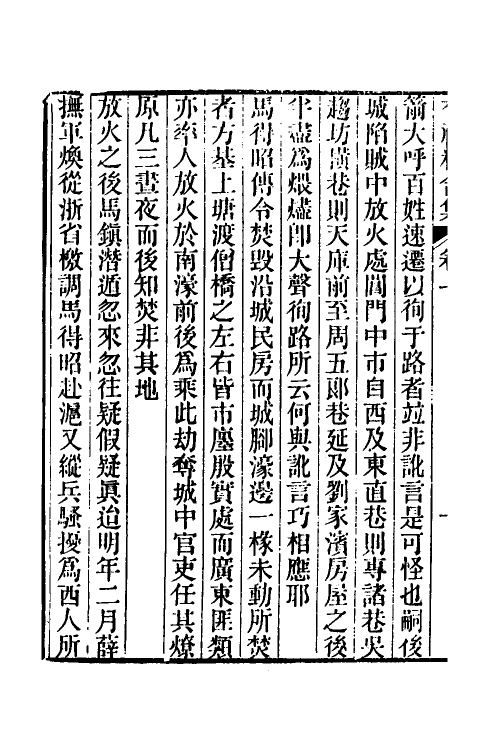 箭大呼百姓速遷以徇于路者竝非訛言是可怪也嗣後
城陷賊中放火處閶門中市自西及東直巷則專諸巷吳
趨坊橫巷則天庫前至周五郎巷延及劉家濱房屋之後
半盡爲煨燼卽大聲徇路所云何與訛言巧相應耶
馬得昭傳令焚毀沿城民房而城腳濠邊一椽未動所焚
者方基上塘渡僧橋之左右皆市廛殷實處而廣東匪類
亦率人放火於南濠前後爲乘此劫奪城中官吏任其燎
原凡三晝夜而後知焚非其地
放火之後馬鎭潛遁忽來忽往疑假疑眞迨明年二月薛
撫軍煥從浙省檄調馬得昭赴滬又縱兵騷擾爲西人所